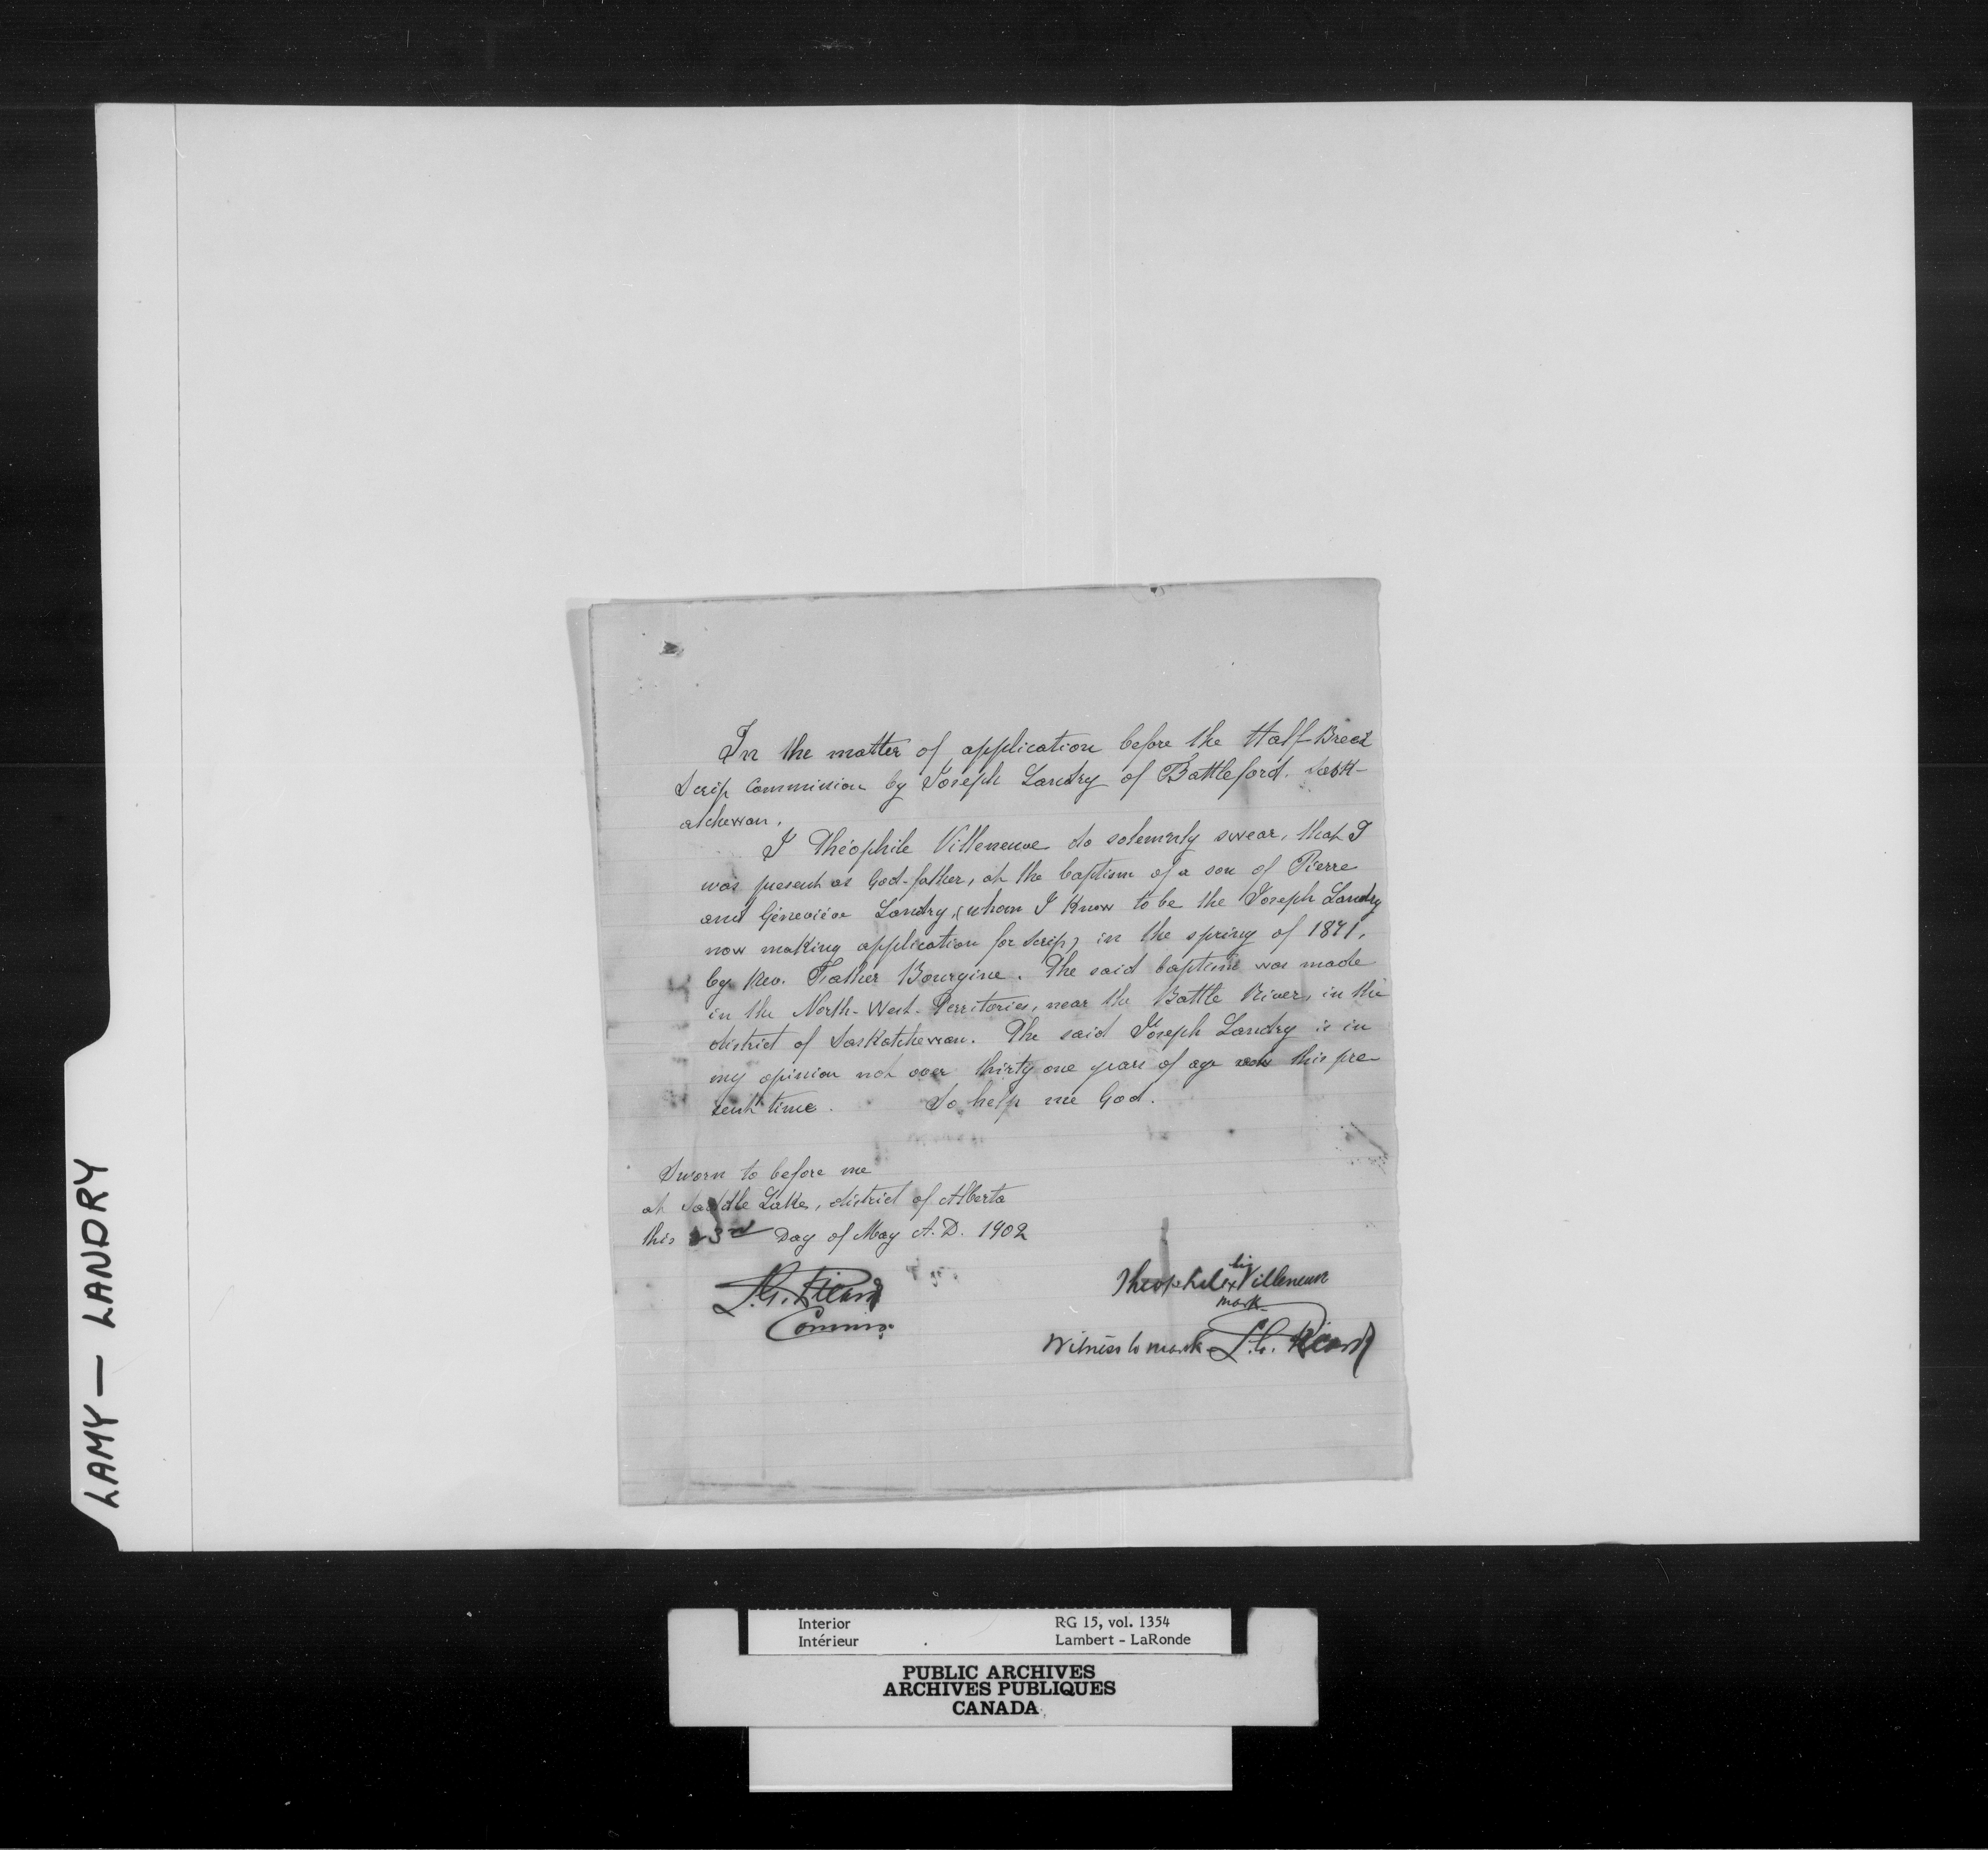 In the matter of application before the Half-Breed
Scrip Commission by Joseph Landry of Battleford. Sask-
atchewan.
I Théophile Villeneuve do solemnly swear, that I
was present as God-father, at the baptism of a son of Pierre
and Géneviève Landry, (whom I Know to be the Joseph Landry
now making application for Scrip) in the spring of 1871,
by Rev. Father Bourgine. The said baptism was made
in the North-West-Territories, near the Battle River, in the
district of Saskatchewan. The said Joseph Landry is in
my opinion not over thirty one years of age this pre-
sent time. So help me God.
Sworn to before me
at Saddle Lake, district of Alberta
this 23rd Day of May A.D. 1902
Theophile x his Villeneuve
mark
Commr.
Witness to mark
LAMY — LANDRY
Interior RG 15, vol. 1354
Intérieur Lambert - LaRonde
PUBLIC ARCHIVES
ARCHIVES PUBLIQUES
CANADA